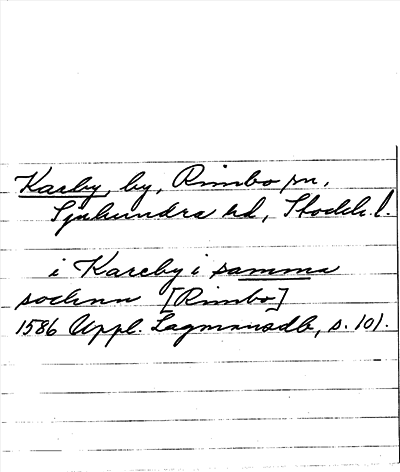 Karby, by, Rimbo sn,
Sjuhundra hd, Stockh. l.
i Kareby i samma
sochnn [Rimbo]
1586 Uppl. Lagmansdb, s. 101.